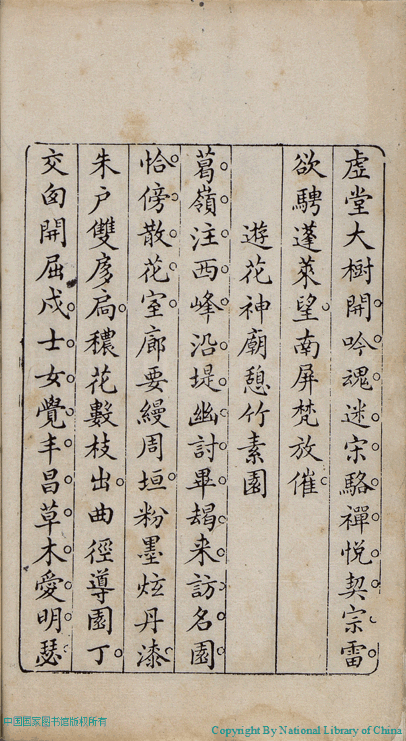 虛堂大樹開吟魂迷宋駱禪悅契宗雷
欲騁蓬萊望南屏梵放催
遊花神廟憩竹素園
葛嶺注西峰沿堤幽討畢朅来訪名園
恰傍散花室廊要縵周垣粉墨炫丹漆
朱户雙扃穠花數枝出曲徑導園丁
交囱開屈戍士女覺丰昌草木愛明瑟
中国国家图书馆版权所有
Copyright By National Library of China